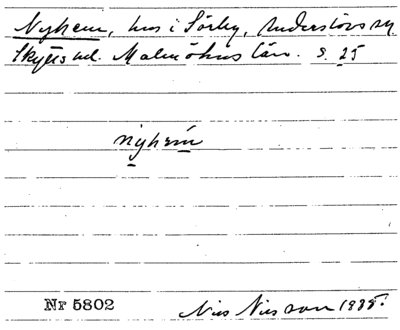 Nyhem, hus i Sörby, Anderslövs sn.
Skytts hd. Malmöhus län. s. 25
nyhem
Nr 5802
Nils Nilsson 1935.